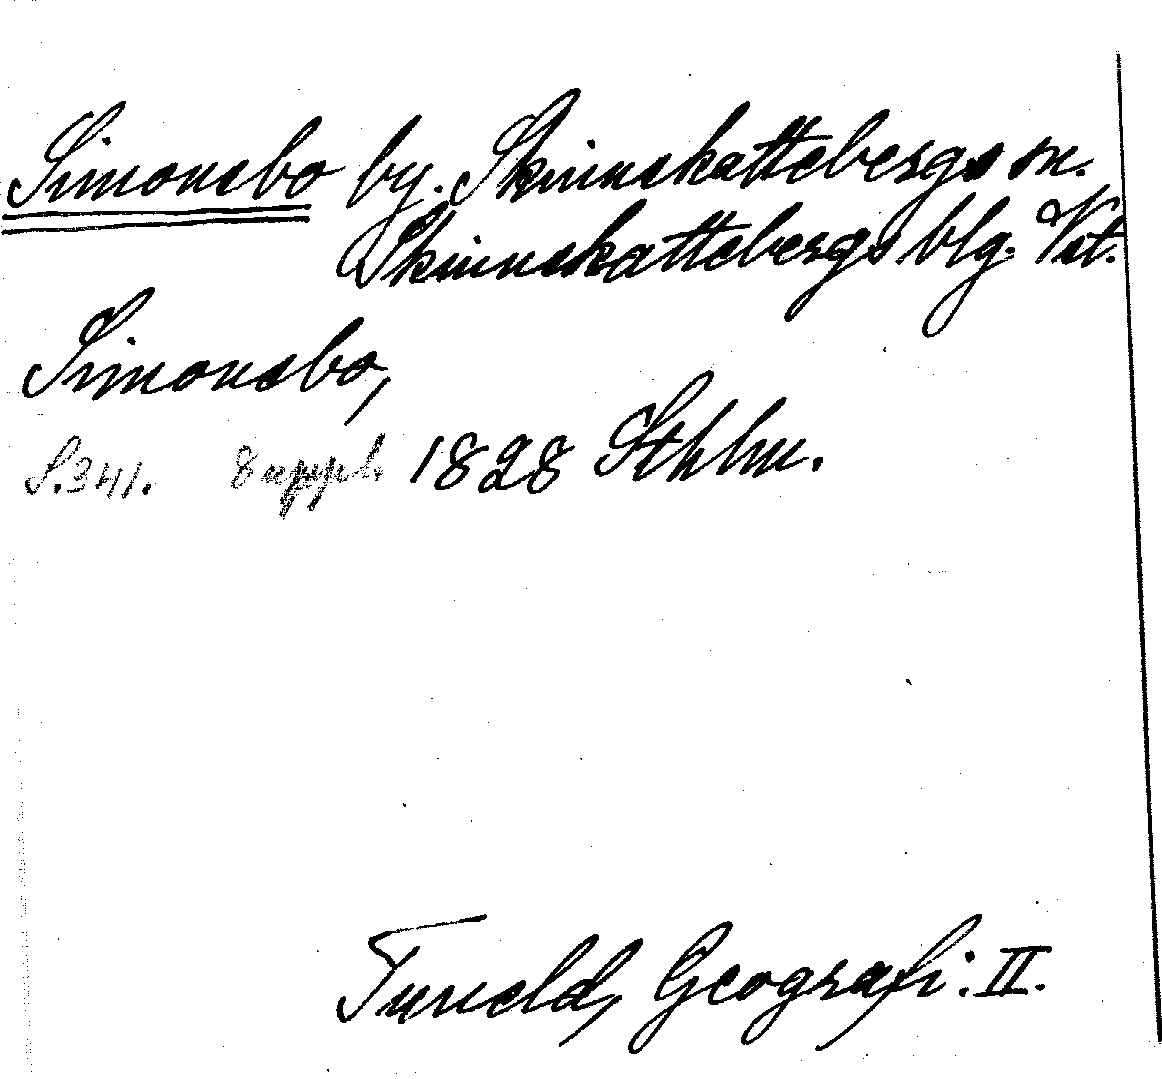 Simonsbo by. Skinnskattebergs sn.
Skinnskattebergs blg. Vst.
Simonsbo,
S.341. 8 uppl. 1828 Sthlm.
Tuneld, Geografi. II.